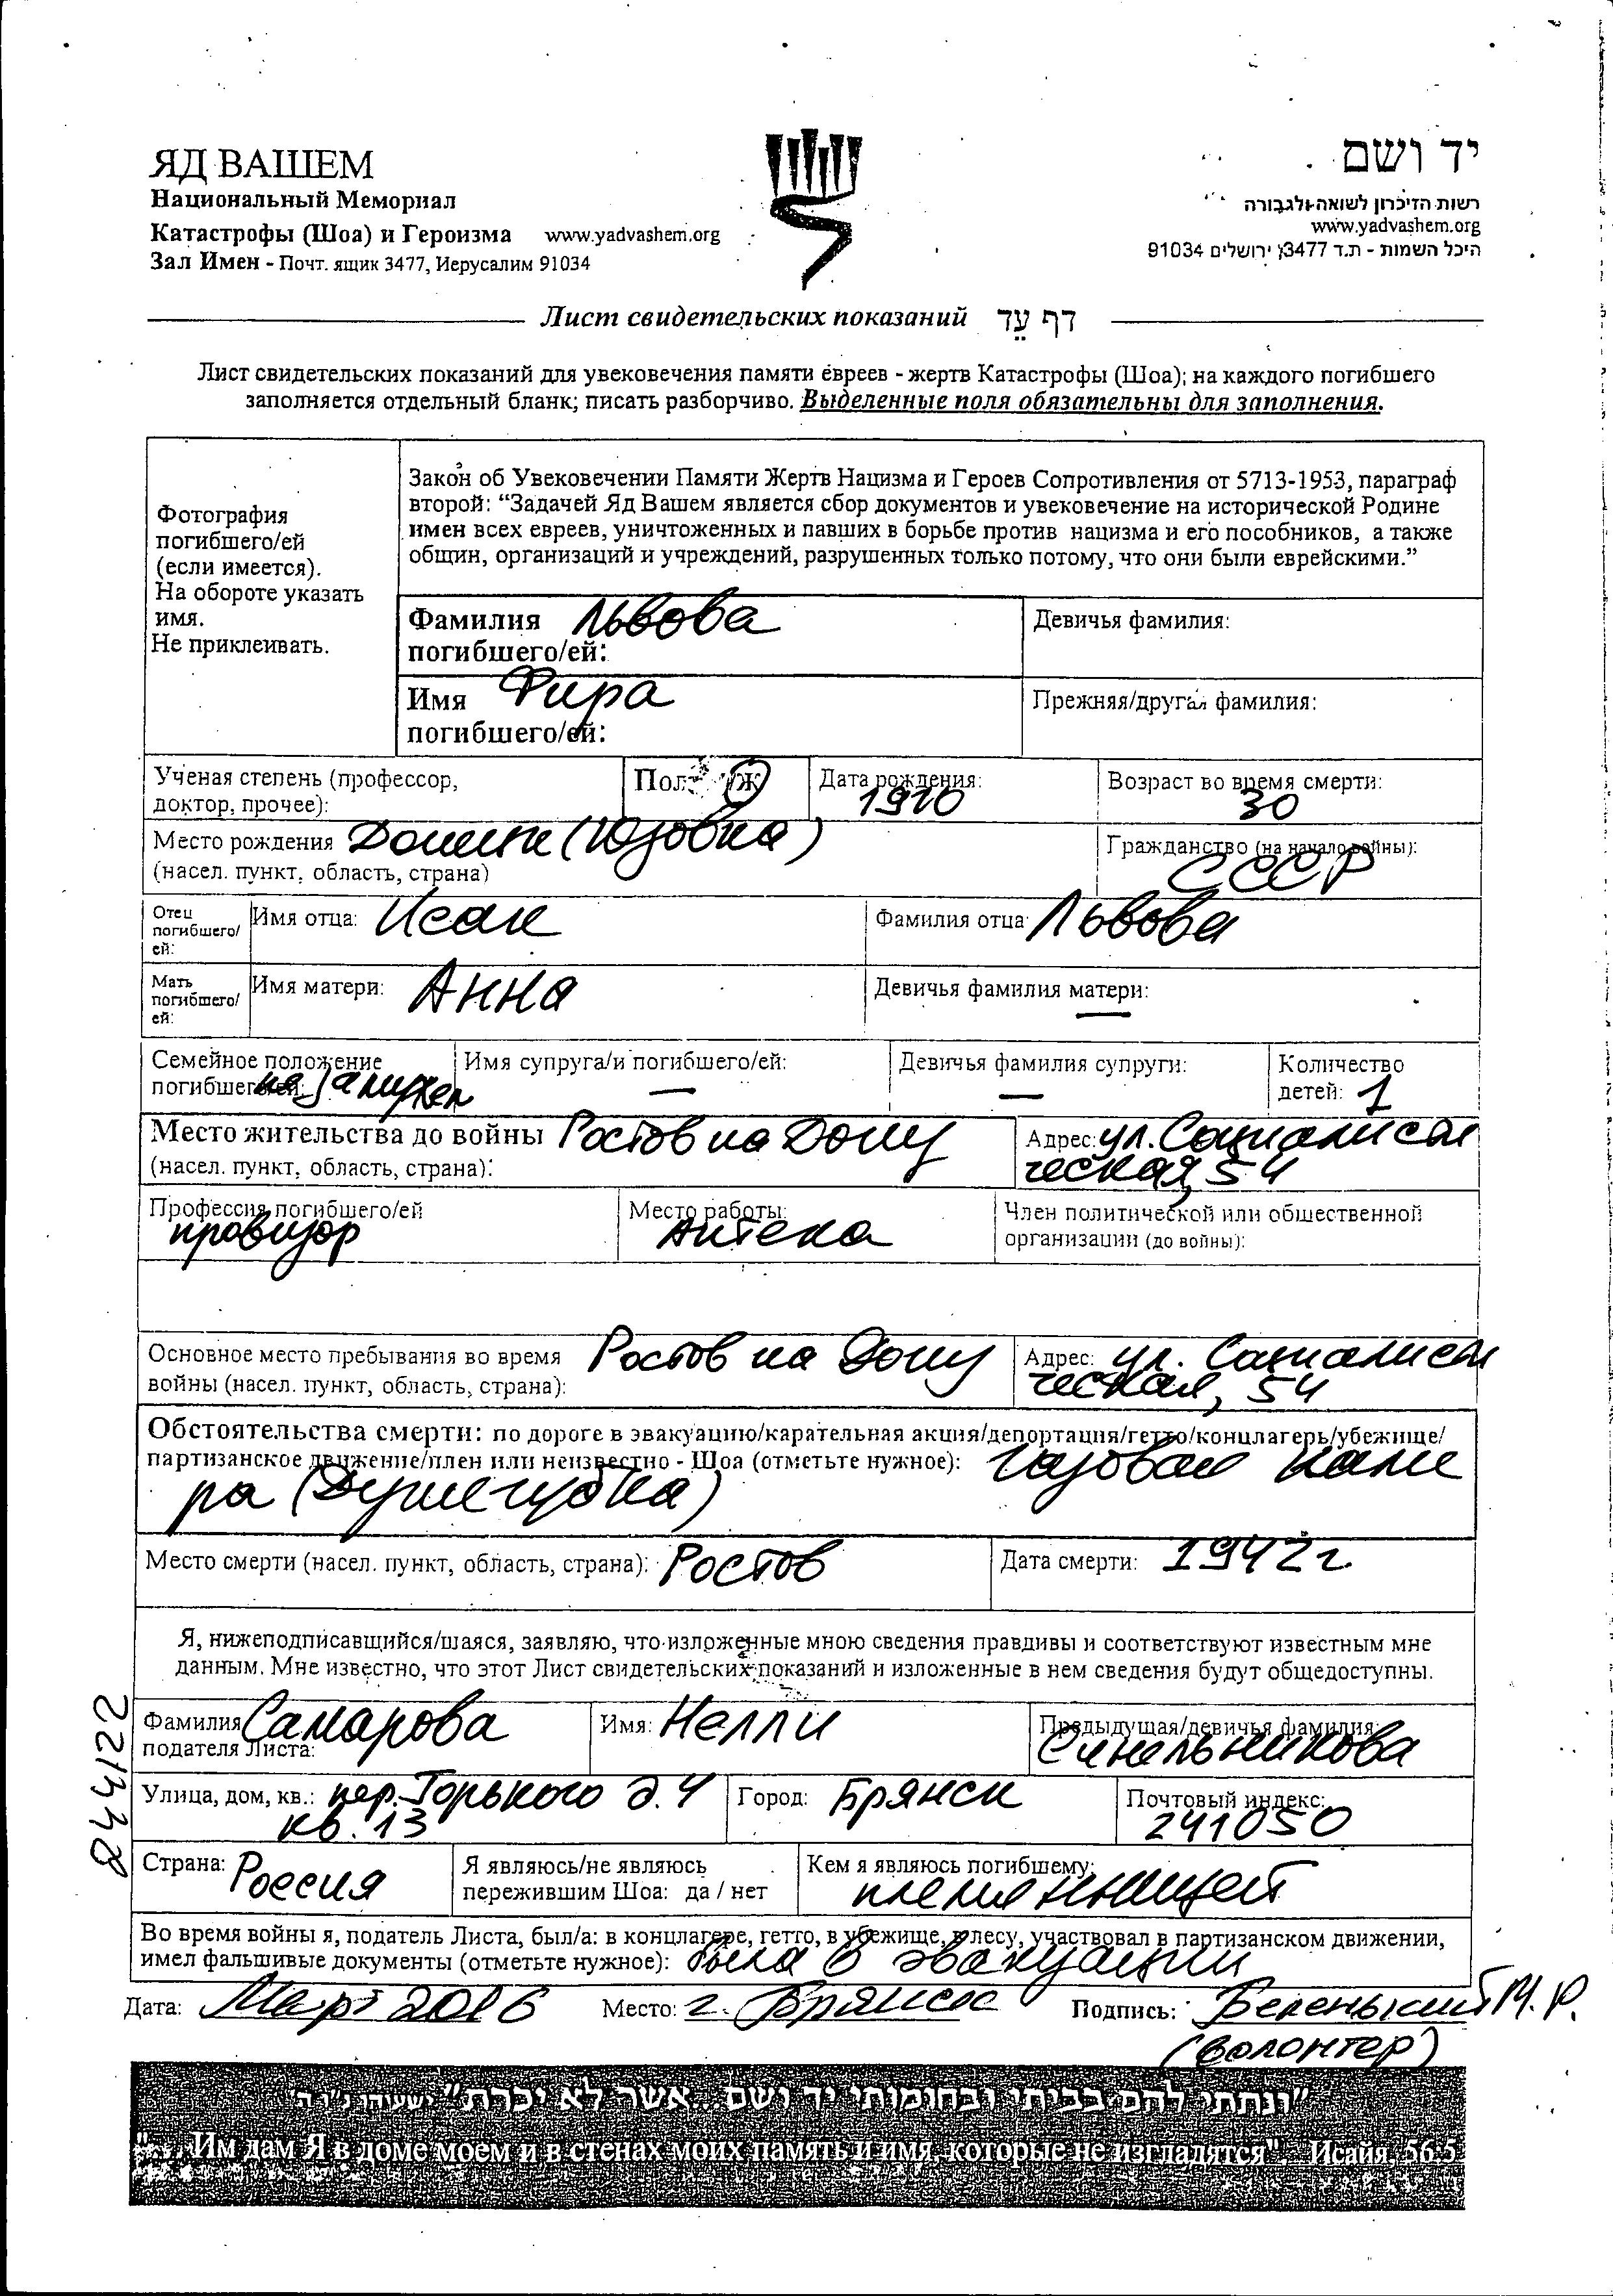 ЯД ВАШЕМ
Национальный Мемориал
Катастрофы (Шоа) и Героизма www.yadvashem.org
Зал Имен - Почт. ящик 3477, Иерусалим 91034
יד ושם
רשות הזיכרון לשואה ולגבורה
www.yadvashem.org
היכל השמות - ת.ד 3477, ירושלים 91034
Лист свидетельских показаний דף עֵד
Лист свидетельских показаний для увековечения памяти евреев - жертв Катастрофы (Шоа); на каждого погибшего
заполняется отдельный бланк; писать разборчиво. Выделенные поля обязательны для заполнения.
Фотография
погибшего/ей
(если имеется).
На обороте указать
имя.
Не приклеивать.
Закон об Увековечении Памяти Жертв Нацизма и Героев Сопротивления от 5713-1953, параграф
второй: “Задачей Яд Вашем является сбор документов и увековечение на исторической Родине
имен всех евреев, уничтоженных и павших в борьбе против нацизма и его пособников, а также
общин, организаций и учреждений, разрушенных только потому, что они были еврейскими.”
Фамилия Львова
погибшего/ей:
Девичья фамилия:
Имя Фира
погибшего/ей:
Прежняя/другая фамилия:
Ученая степень (профессор,
доктор, прочее):
Пол: Ж
Дата рождения:
1910
Возраст во время смерти:
30
Место рождения Донецк (Юзовка)
(насел. пункт, область, страна)
Гражданство (на начало войны):
СССР
Отец
погибшего/
ей:
Имя отца: Исак
Фамилия отца Львова
Мать
погибшего/
ей:
Имя матери: Анна
Девичья фамилия матери:
—
Семейное положение
погибшего/ей: не замужем
Имя супруга/и погибшего/ей:
—
Девичья фамилия супруги:
—
Количество
детей: 1
Место жительства до войны Ростов на Дону
(насел. пункт, область, страна):
Адрес: ул. Социалисти
ческая, 54
Профессия погибшего/ей
провизор
Место работы:
Аптека
Член политической или общественной
организации (до войны):
Основное место пребывания во время Ростов на Дону
войны (насел. пункт, область, страна):
Адрес: ул. Социалисти
ческая, 54
Обстоятельства смерти: по дороге в эвакуацию/карательная акция/депортация/гетто/концлагерь/убежище/
партизанское движение/плен или неизвестно - Шоа (отметьте нужное): Газовая каме
ра (Душегубка)
Место смерти (насел. пункт, область, страна): Ростов
Дата смерти: 1942 г.
Я, нижеподписавщийся/шаяся, заявляю, что изложенные мною сведения правдивы и соответствуют известным мне
данным. Мне известно, что этот Лист свидетельских показаний и изложенные в нем сведения будут общедоступны.
Фамилия Самарова
подателя Листа:
Имя: Нелли
Предыдущая/девичья фамилия:
Синельникова
Улица, дом, кв.: пер. Горького д. 4
кв. 13
Город: Брянск
Почтовый индекс:
241050
Страна: Россия
Я являюсь/не являюсь
пережившим Шоа: да / нет
Кем я являюсь погибшему:
племянницей
Во время войны я, податель Листа, был/а: в концлагере, гетто, в убежище, в лесу, участвовал в партизанском движении,
имел фальшивые документы (отметьте нужное): была в эвакуации
Дата: Март 2016 Место: г. Брянск Подпись: Беленький М. Р.
(волонтер)
"ונתתי להם בביתי ובחומותי יד ושם...אשר לא יכרת" ישעיהו נ"ו ה'
"...Им дам Я в доме моем и в стенах моих память и имя, которые не изгладятся" Исайя, 56:5